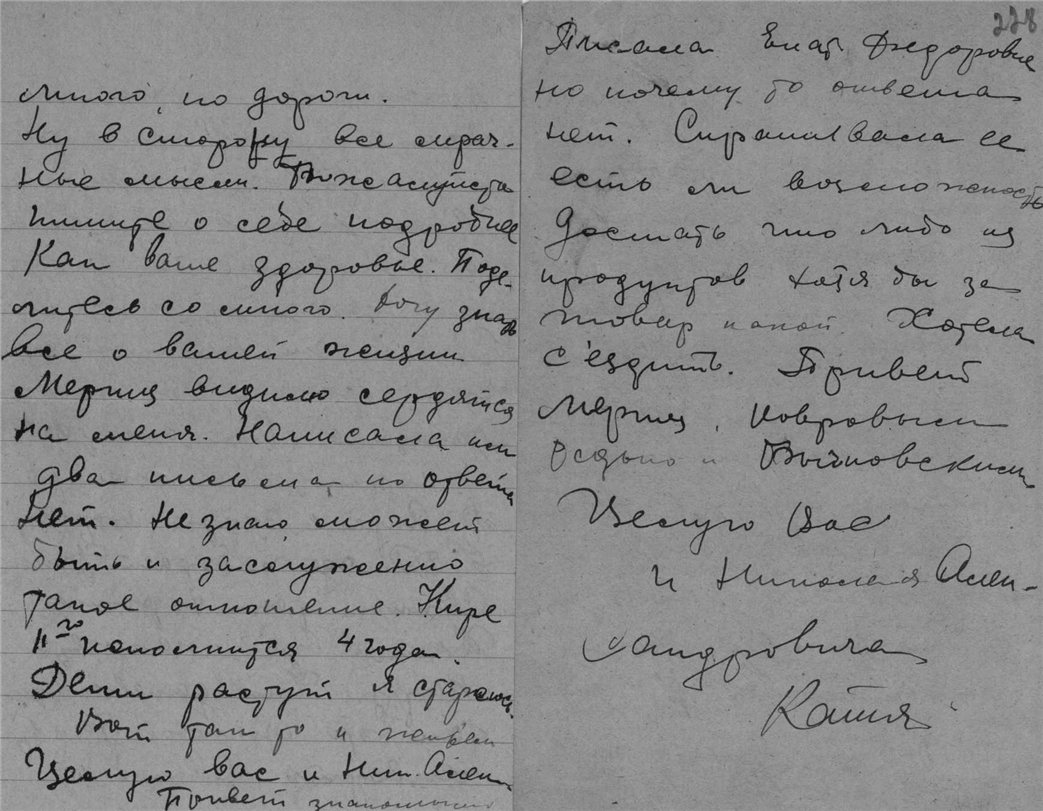 много, но дороги.
Ну в сторону все мрач-
ные мысли. Пожалуйста
пишите о себе подробнее
Как ваше здоровье. Поде-
литесь со мною. Хочу знать
все о вашей жизни
Мерциц видимо сердятся
на меня. Написала им
два письма но ответа
нет. Не знаю может
быть и заслуженно
такое отношение. Кире
11го исполнится 4 года.
Дети растут я стареюсь.
Вот так то и живем
Целую вас и Ник. Алек.
Привет знакомым
228
Писала Екат Федоровне
но почему то ответа
нет. Спрашивала ее
есть ли возможность
достать что либо из
продуктов хотя бы за
товар какой. Хотела
с'ездить. Привет
Мерциц, Ковровым
и Вычковским
Целую Вас
и Николая Алек-
сандровича
Катя